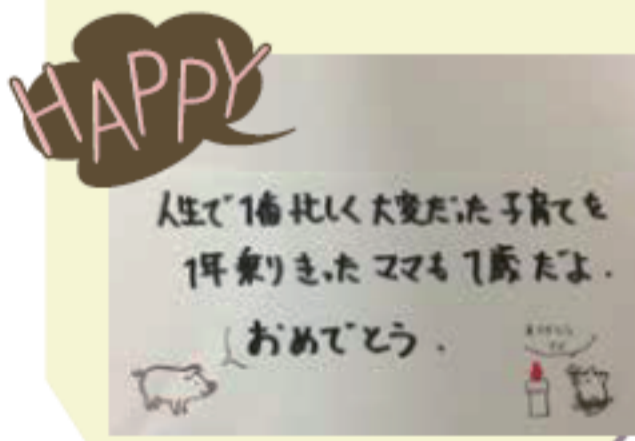 HAPPY
人生で1番忙しく大変だった子育てを
1年乗りきったママも1歳だよ.
おめでとう.